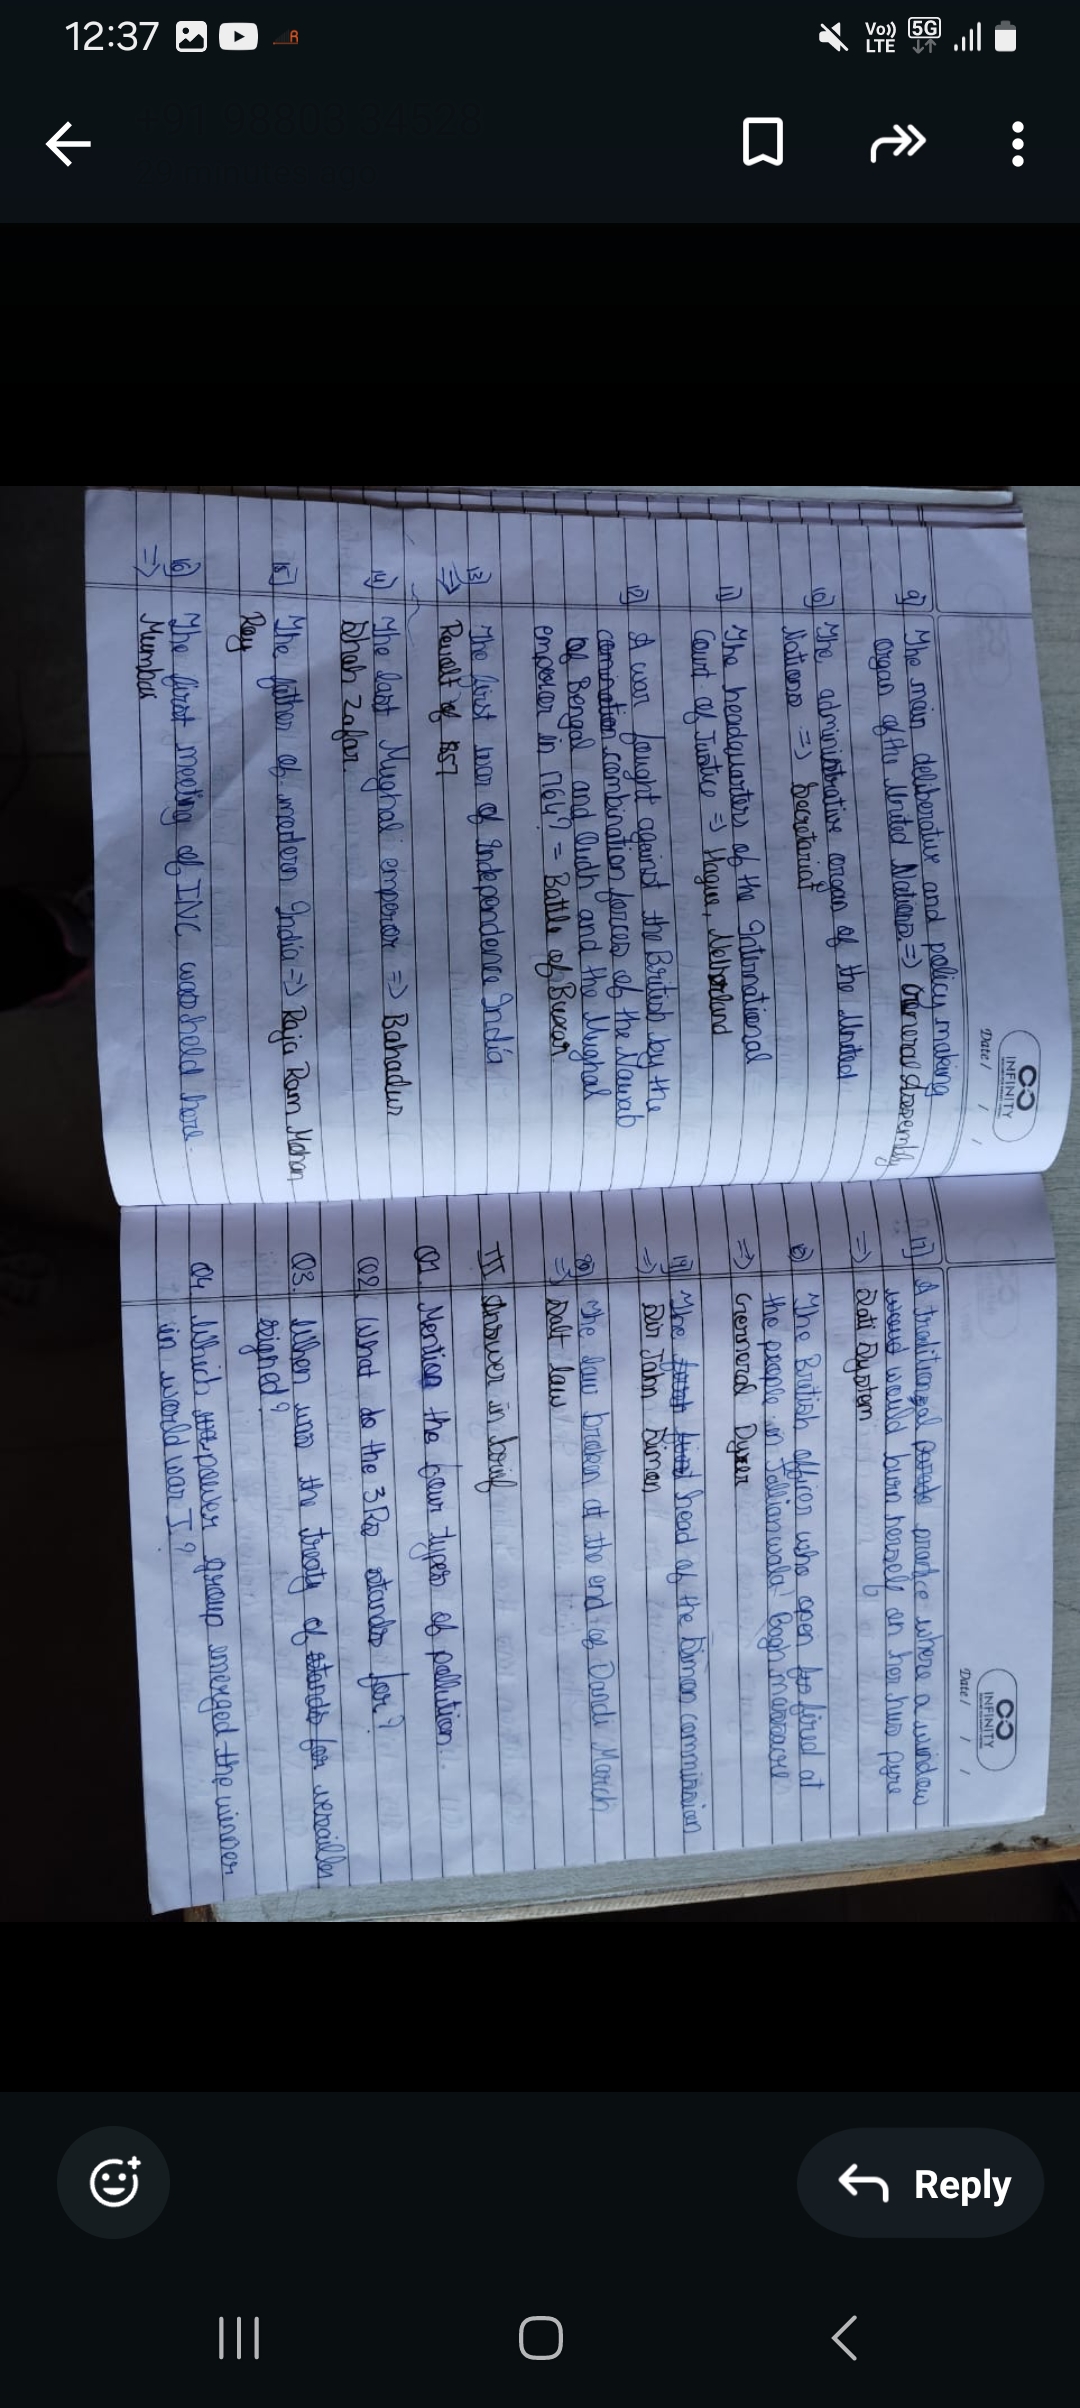 12:37
Vo)) LTE
5G
INFINITY
Date / / /
9) The main deliberative and policy making
organ of the United Nations => General Assembly
10) The administrative organ of the United
Nations => Secretariat
11) The headquarters of the International
Court of Justice => Hague, Netherland
12) A war fought against the British by the
combination forces of the Nawab
of Bengal and Oudh and the Mughal
emperor in 1764? = Battle of Buxar
13) The first war of Independence India
=> Revolt of 1857
14) The last Mughal emperor => Bahadur
Shah Zafar.
15) The father of modern India => Raja Ram Mohan
Roy
16) The first meeting of INC was held here.
=> Mumbai
INFINITY
Date / / /
17) A traditional practice where a window
would burn herself on her hus pyre
=> Sati System
The British officer who open fired at
the people in Jallianwala Bagh massacre
=> General Dyer
19) The head of the Simon commission
=> Sir John Simon
20) The law broken at the end of Dandi March
=> Salt law
III Answer in brief
Q1. Mention the four types of pollution.
Q2. What do the 3Rs stands for?
Q3. When was the treaty of versailles
signed?
Q4. Which power group emerged the winner
in world war I?
Reply